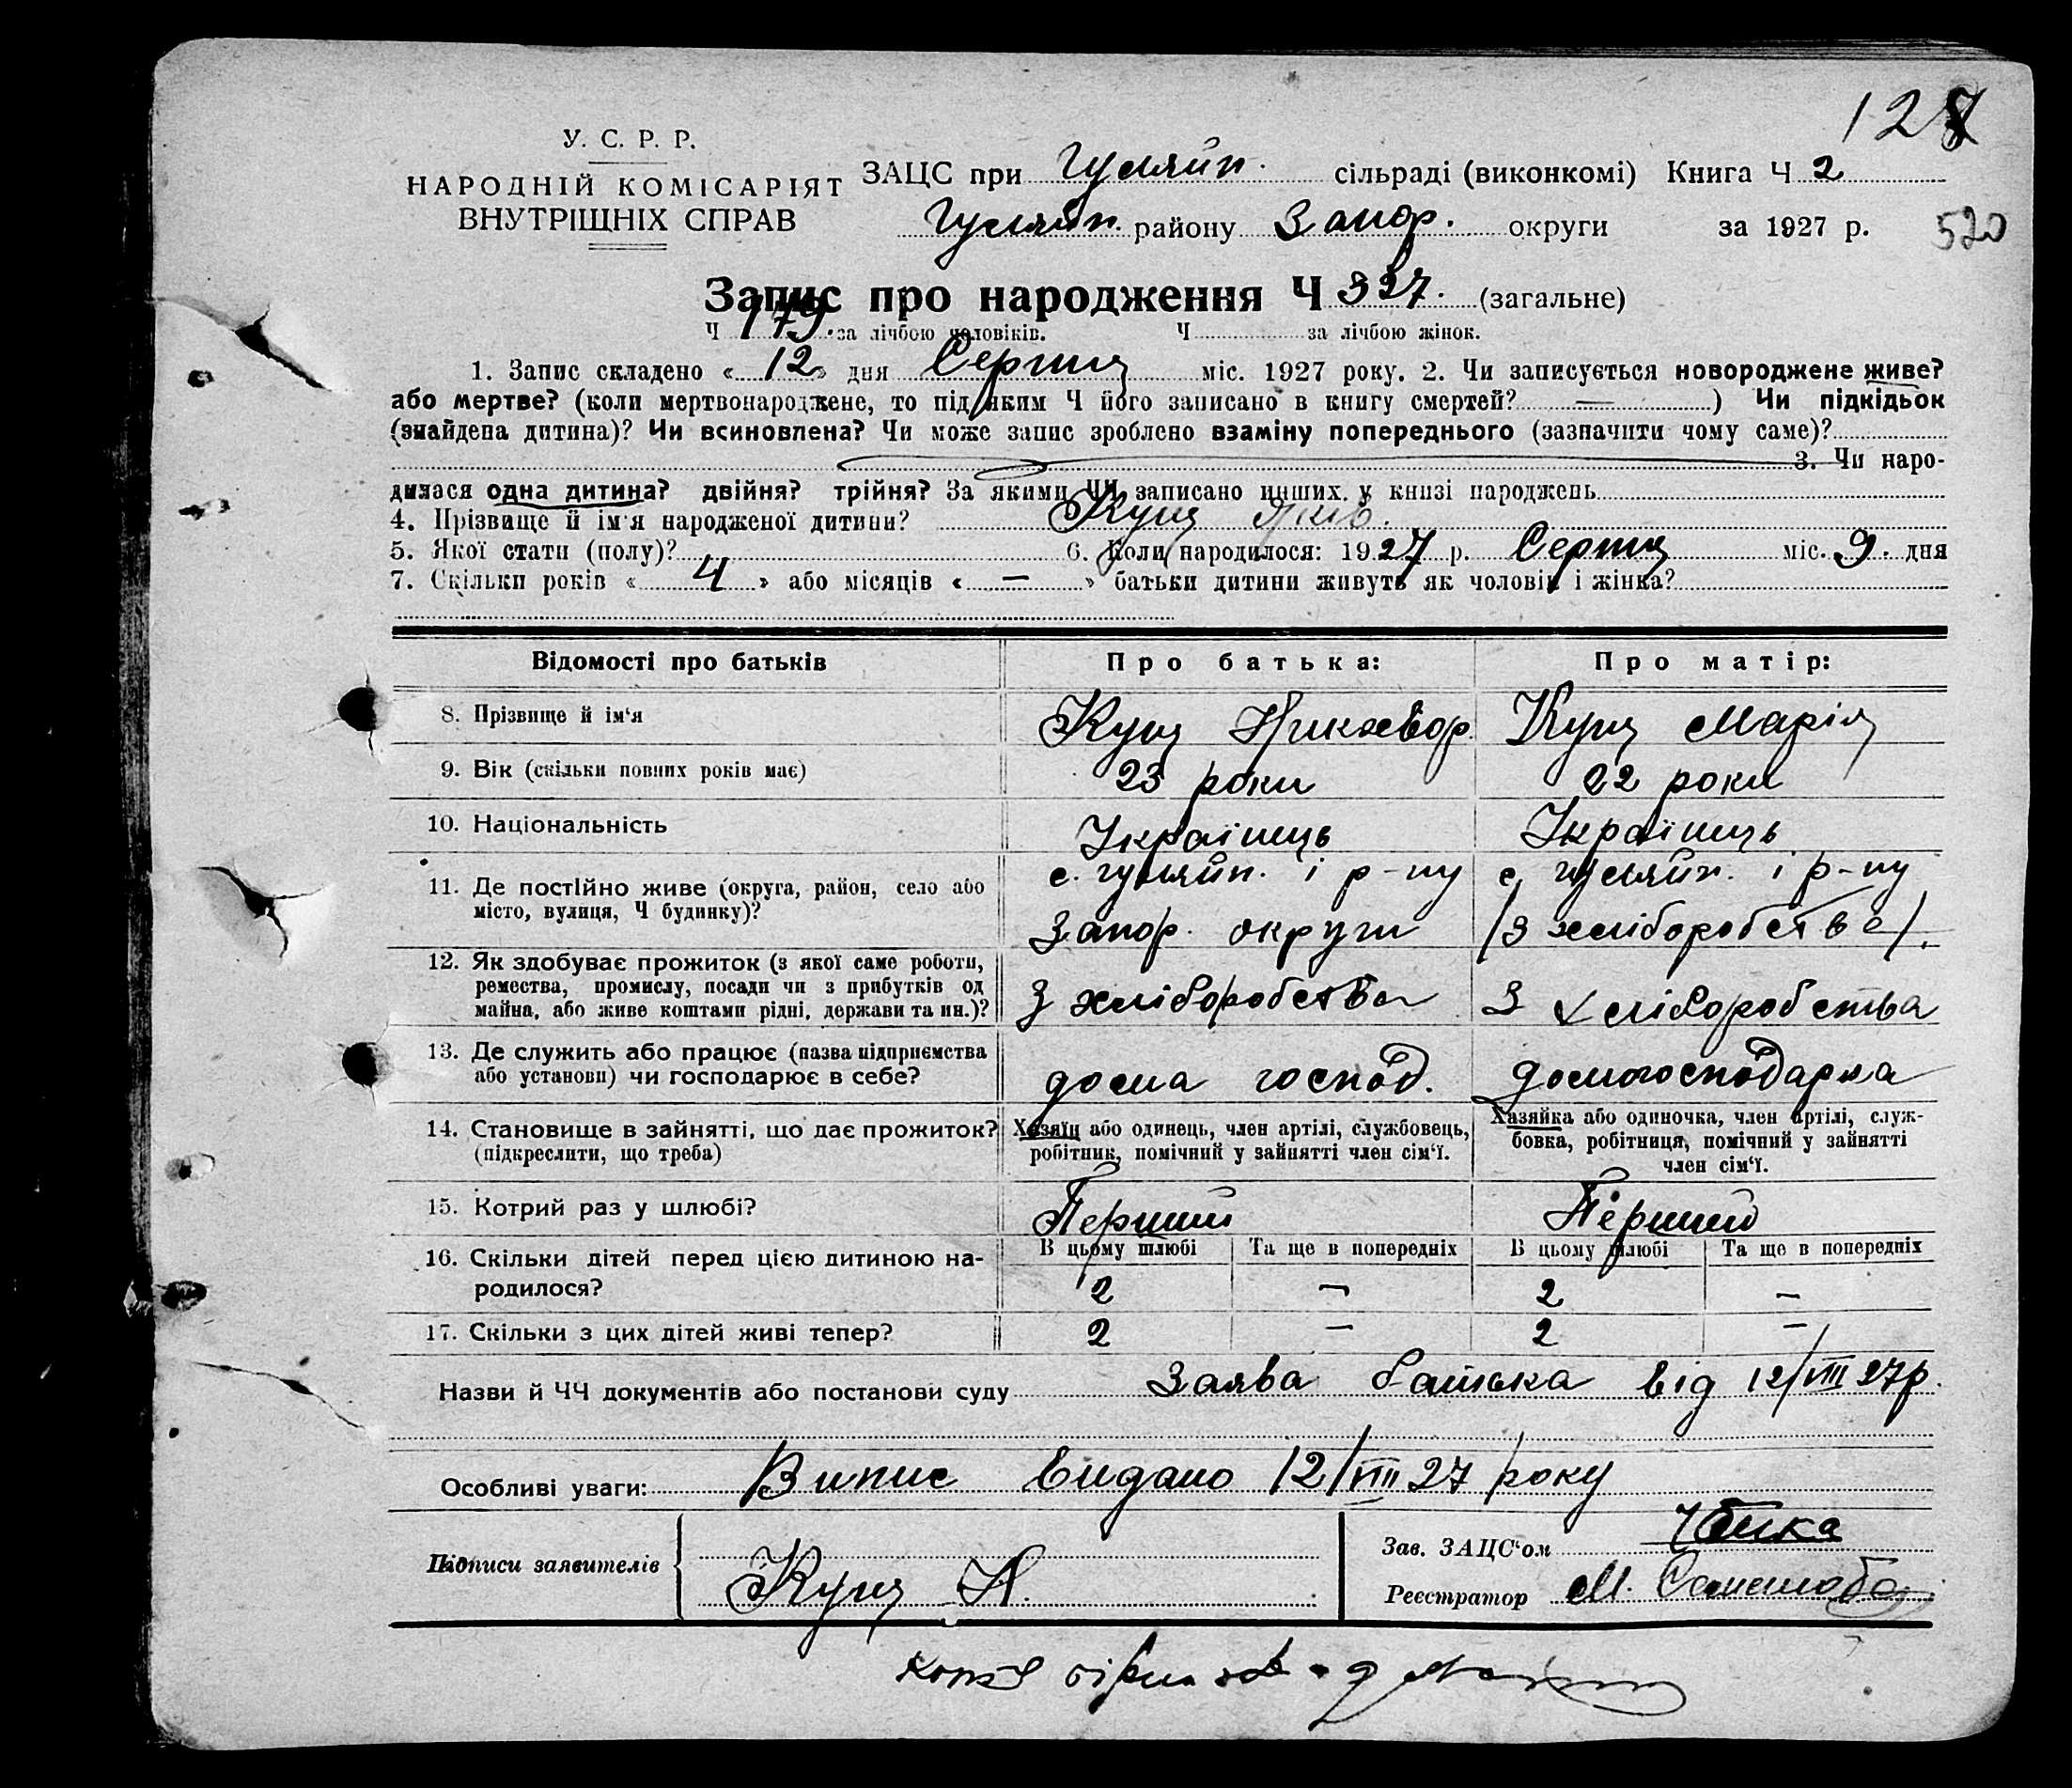 127
У. С. Р. Р.
НАРОДНІЙ КОМІСАРІЯТ
ВНУТРІШНІХ СПРАВ
ЗАЦС при Гуляйп. сільраді (виконкомі) Книга Ч 2
Гуляйп. району Запор. округи за 1927 р.
520
Запис про народження Ч 327. (загальне)
Ч 179. за лічбою чоловіків. Ч за лічбою жінок.
1. Запис складено «12» дня Серпня міс. 1927 року. 2. Чи записується новороджене живе?
або мертве? (коли мертвонароджене, то під яким Ч його записано в книгу смертей? —) Чи підкідьок
(знайдена дитина)? Чи всиновлена? Чи може запис зроблено взаміну попереднього (зазначити чому саме)?
3. Чи наро-
дилася одна дитина? двійня? трійня? За якими ЧЧ записано инших у книзі народжень
4. Прізвище й ім'я народженої дитини? Куц Яків.
5. Якої стати (полу)? 6. Коли народилося: 1927 р. Серпня міс. 9. дня
7. Скільки років «4» або місяців «—» батьки дитини живуть як чоловік і жінка?
Відомості про батьків Про батька: Про матір:
8. Прізвище й ім'я Куц Никивор Куц Марія
9. Вік (скільки повних років має) 23 роки 22 роки
10. Національність Українець Українець
11. Де постійно живе (округа, район, село або
місто, вулиця, Ч будинку)?
с. Гуляйп. і р-ну
Запор. округи
с. Гуляйп. і р-ну
/З хліборобства/.
12. Як здобуває прожиток (з якої саме роботи,
ремества, промислу, посади чи з прибутків од
майна, або живе коштами рідні, держави та ин.)?
З хліборобства З хліборобства
13. Де служить або працює (назва підприємства
або установи) чи господарює в себе?
дома господ. домогосподарка
14. Становище в зайнятті, що дає прожиток?
(підкреслити, що треба)
Хазяїн або одинець, член артілі, службовець,
робітник, помічний у зайнятті член сім'ї.
Хазяйка або одиночка, член артілі, служ-
бовка, робітниця, помічний у зайнятті
член сім'ї.
15. Котрий раз у шлюбі? Перший Перший
16. Скільки дітей перед цією дитиною на-
родилося?
В цьому шлюбі Та ще в попередніх В цьому шлюбі Та ще в попередніх
2 — 2 —
17. Скільки з цих дітей живі тепер? 2 — 2 —
Назви й ЧЧ документів або постанови суду Заява батька від 12/VIII 27р.
Особливі уваги: Випис видано 12/VIII 27 року
Підписи заявителів Куц Н.
Зав. ЗАЦС'ом
Реєстратор М.